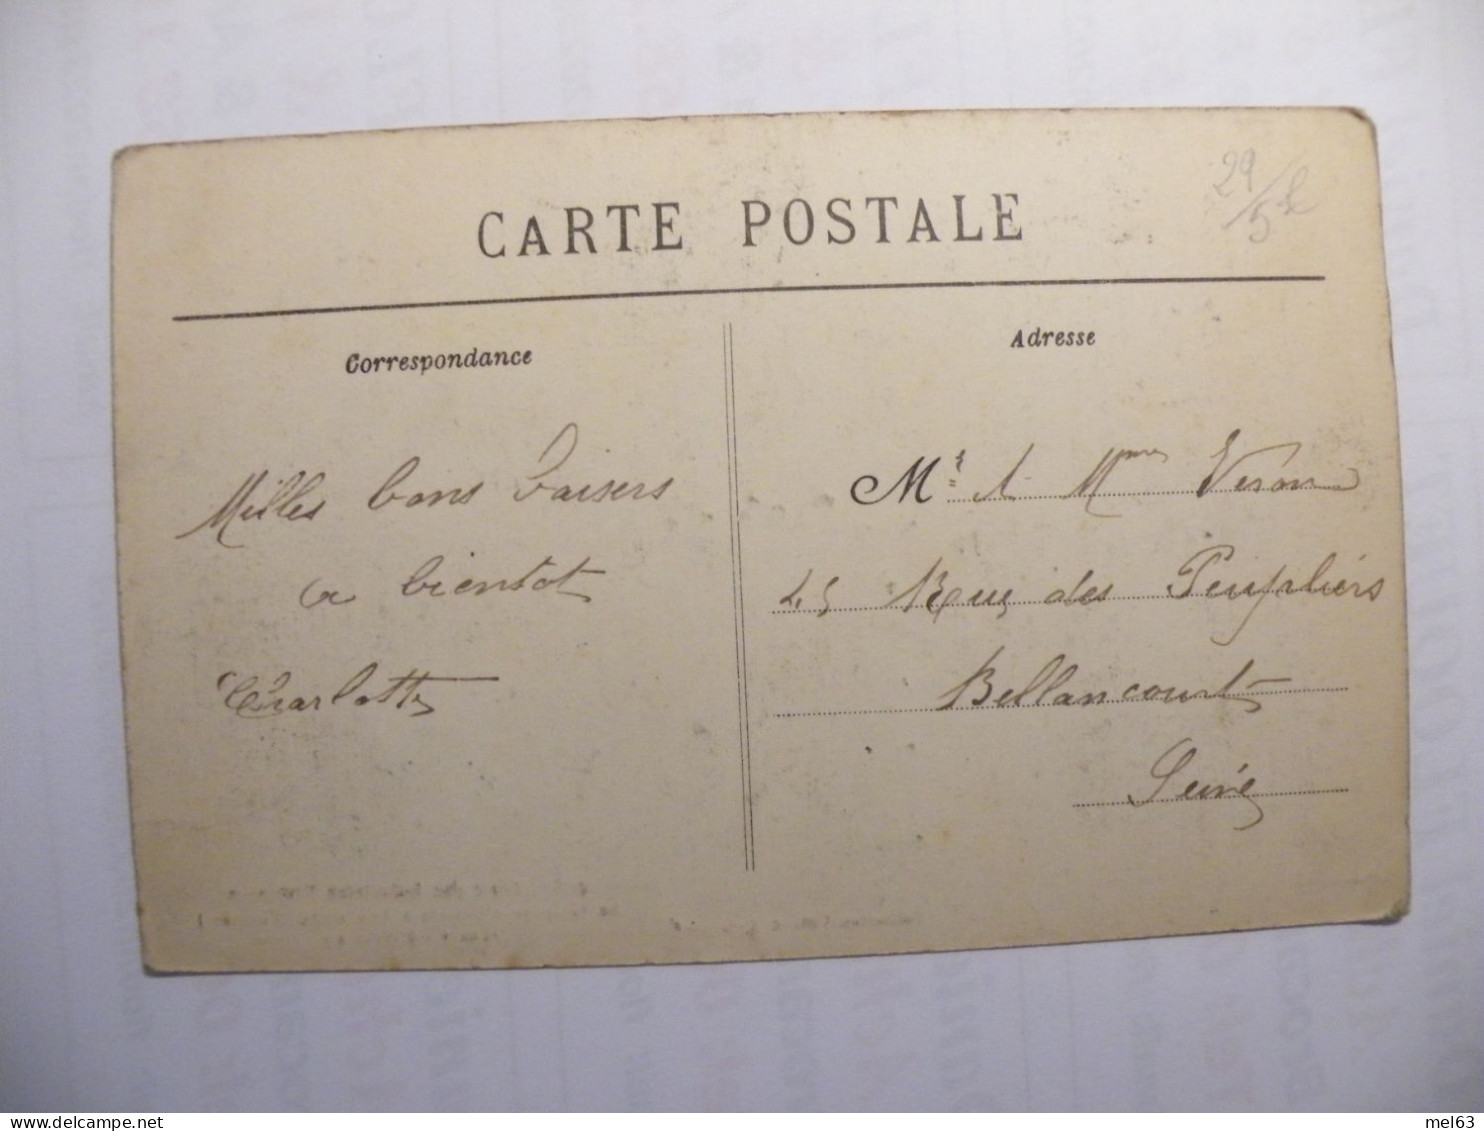 CARTE POSTALE
29/5
Correspondance
Adresse
Milles bons baisers
a bientot
Charlotte
Mr & Mme Veron
45 Rue des Peupliers
Bellancourt
Seine
delcampe.net
mel63